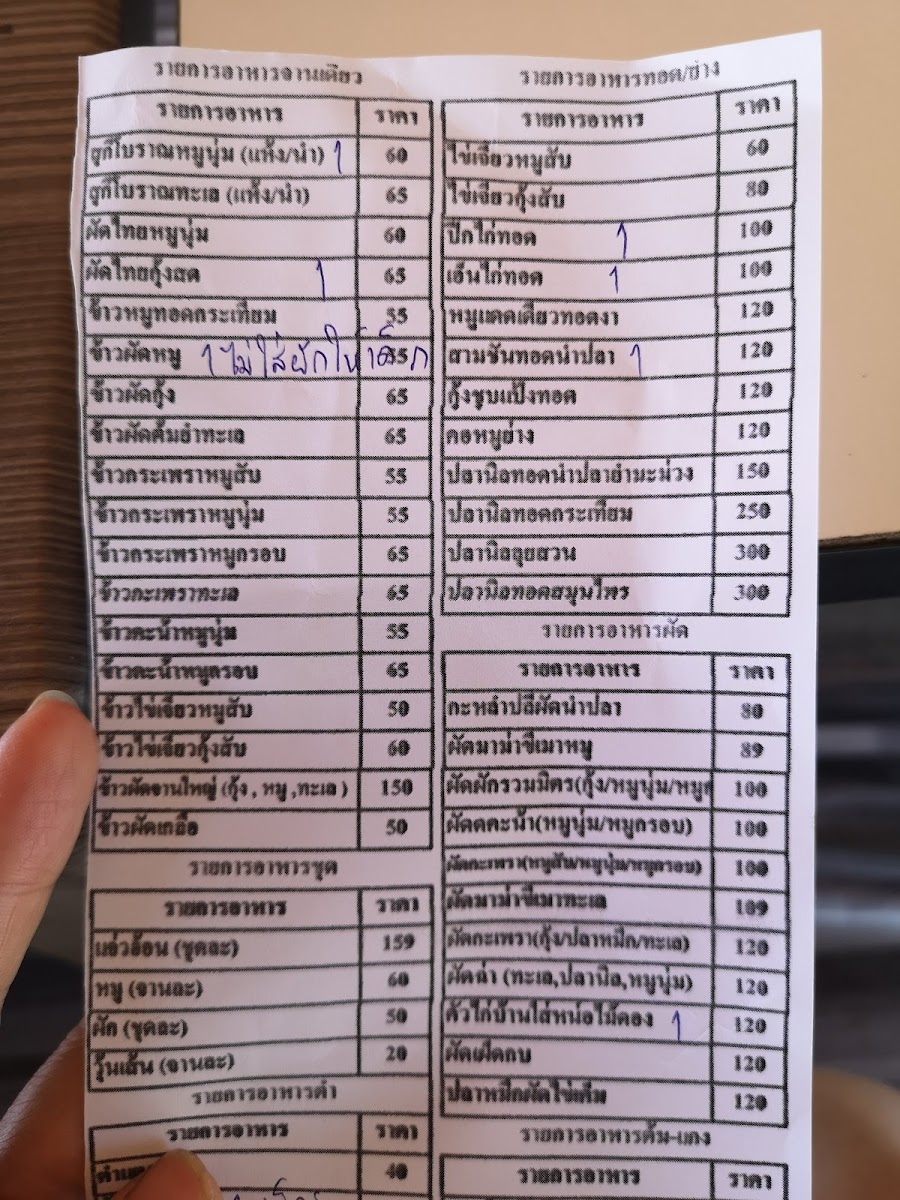 รายการอาหารจานเดียว
รายการอาหาร ราคา
สุกี้โบราณหมูนุ่ม (แห้ง/น้ำ) 1 60
สุกี้โบราณทะเล (แห้ง/น้ำ) 65
ผัดไทยหมูนุ่ม 60
ผัดไทยกุ้งสด 1 65
ข้าวหมูทอดกระเทียม 55
ข้าวผัดหมู 1 ไม่ใส่ผักให้เด็ก 55
ข้าวผัดกุ้ง 65
ข้าวผัดต้มยำทะเล 65
ข้าวกระเพราหมูสับ 55
ข้าวกระเพราหมูนุ่ม 55
ข้าวกระเพราหมูกรอบ 65
ข้าวกะเพราทะเล 65
ข้าวคะน้าหมูนุ่ม 55
ข้าวคะน้าหมูกรอบ 65
ข้าวไข่เจียวหมูสับ 50
ข้าวไข่เจียวกุ้งสับ 60
ข้าวผัดจานใหญ่ (กุ้ง , หมู ,ทะเล ) 150
ข้าวผัดเกลือ 50
รายการอาหารชุด
รายการอาหาร ราคา
แจ่วฮ้อน (ชุดละ) 159
หมู (จานละ) 60
ผัก (ชุดละ) 50
วุ้นเส้น (จานละ) 20
รายการอาหารตำ
รายการอาหาร ราคา
40
รายการอาหารทอด/ย่าง
รายการอาหาร ราคา
ไข่เจียวหมูสับ 60
ไข่เจียวกุ้งสับ 80
ปีกไก่ทอด 1 100
เอ็นไก่ทอด 1 100
หมูแดดเดียวทอดงา 120
สามชั้นทอดน้ำปลา 1 120
กุ้งชุบแป้งทอด 120
คอหมูย่าง 120
ปลานิลทอดน้ำปลายำมะม่วง 150
ปลานิลทอดกระเทียม 250
ปลานิลลุยสวน 300
ปลานิลทอดสมุนไพร 300
รายการอาหารผัด
รายการอาหาร ราคา
กะหล่ำปลีผัดน้ำปลา 80
ผัดมาม่าขี้เมาหมู 89
ผัดผักรวมมิตร(กุ้ง/หมูนุ่ม/หมู 100
ผัดดคะน้า(หมูนุ่ม/หมูกรอบ) 100
ผัดกะเพรา(หมูสับ/หมูนุ่ม/หมูกรอบ) 100
ผัดมาม่าขี้เมาทะเล 109
ผัดกะเพรา(กุ้ง/ปลาหมึก/ทะเล) 120
ผัดฉ่า (ทะเล,ปลานิล,หมูนุ่ม) 120
คั่วไก่บ้านใส่หน่อไม้ดอง 1 120
ผัดเผ็ดกบ 120
ปลาหมึกผัดไข่เค็ม 120
รายการอาหารต้ม-แกง
รายการอาหาร ราคา